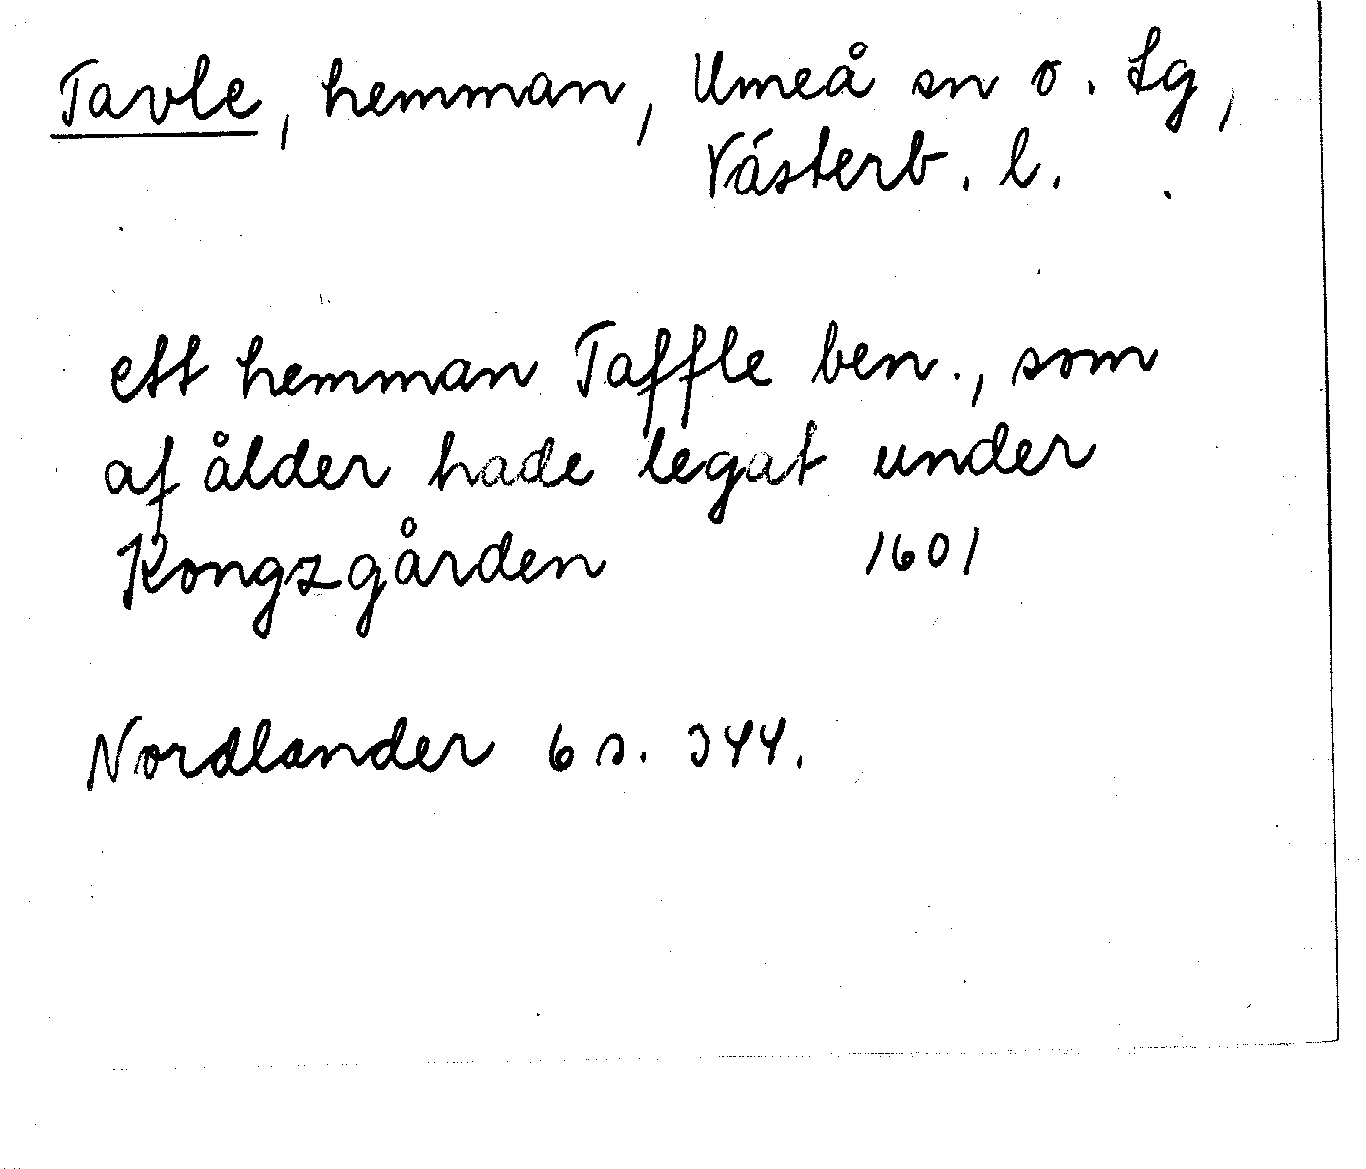 Tavle, hemman, Umeå sn o. tg,
Västerb. l.
ett hemman Taffle ben., som
af ålder hade legat under
Kongzgården 1601
Nordlander 6 s. 344.